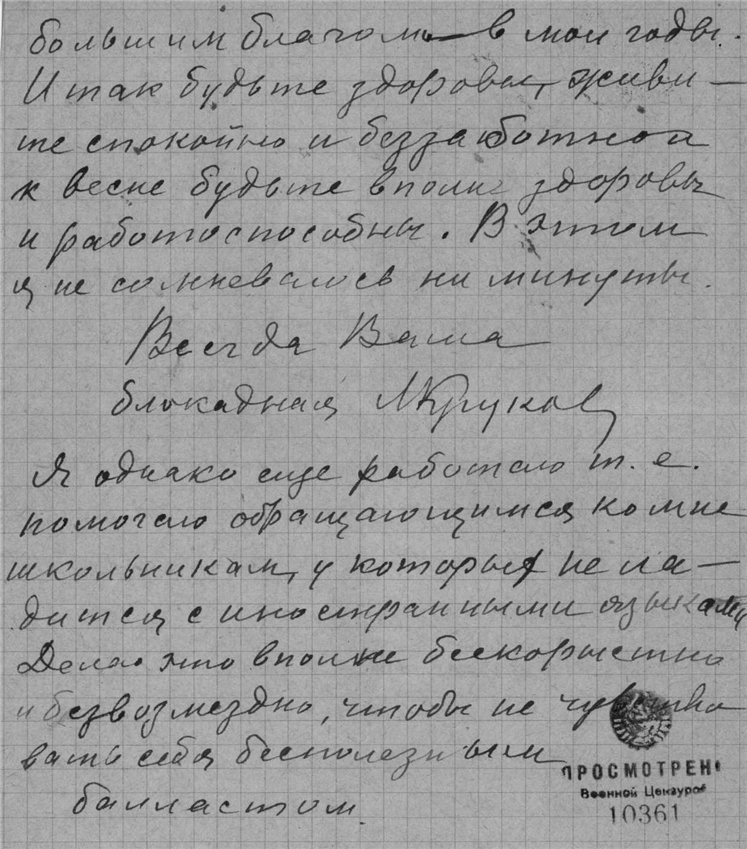 большим благом в мои годы.
Итак будьте здоровы, живи-
те спокойно и беззаботно а
к весне будьте вполне здоровы
и работоспособны. В этом
я не сомневаюсь ни минуты.
Всегда Ваша
блокадная МКруков
Я однако еще работаю т. е.
помогаю обращающимся ко мне
школьникам, у которых не ла-
дится с иностранными языками
Делаю это вполне бескорыстно
и безвозмездно, чтобы не чувство
вать себя бесполезным
балластом.
ПРОСМОТРЕНО
Военной Цензурой
10361